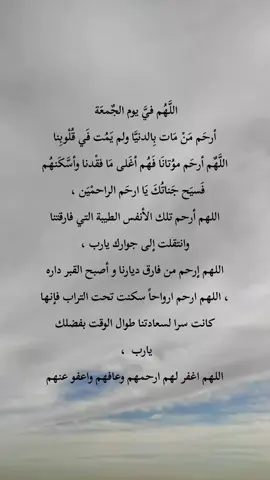 اللَّهُم فيَّ يوم الجُمعَة
أرحَم مَنْ مَات بِالدنيَّا ولم يَمُت فَي قُلُوبِنا
اللَّهُم أرحَم موُتانَا فَهُم أغَلى مَا فقْدنا وأسَّكَنهُم
فَسيَح جَناتُكَ يَا ارحَم الراحمْيَن ،
اللهم أرحم تلك الأنفس الطيبة التي فارقتنا
وانتقلت إلى جوارك يارب ،
اللهم إرحم من فارق ديارنا و أصبح القبر داره
، اللهم ارحم ارواحاً سكنت تحت التراب فإنها
كانت سرا لسعادتنا طوال الوقت بفضلك
يارب ،
اللهم اغفر لهم ارحمهم وعافهم واعفو عنهم